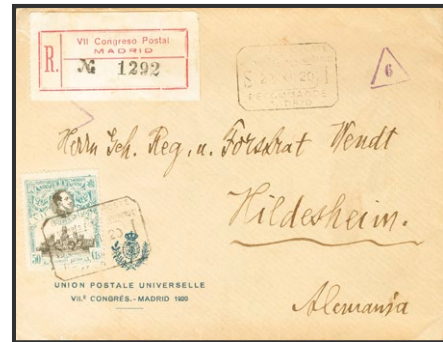 VII Congreso Postal
MADRID
R. № 1292
RECOMMANDÉ
MADRID
6
Herrn Geh. Reg. u. Forstrat Wendt
Hildesheim.
50
UNION POSTALE UNIVERSELLE
VII.e CONGRÉS.-MADRID 1920
Alemania